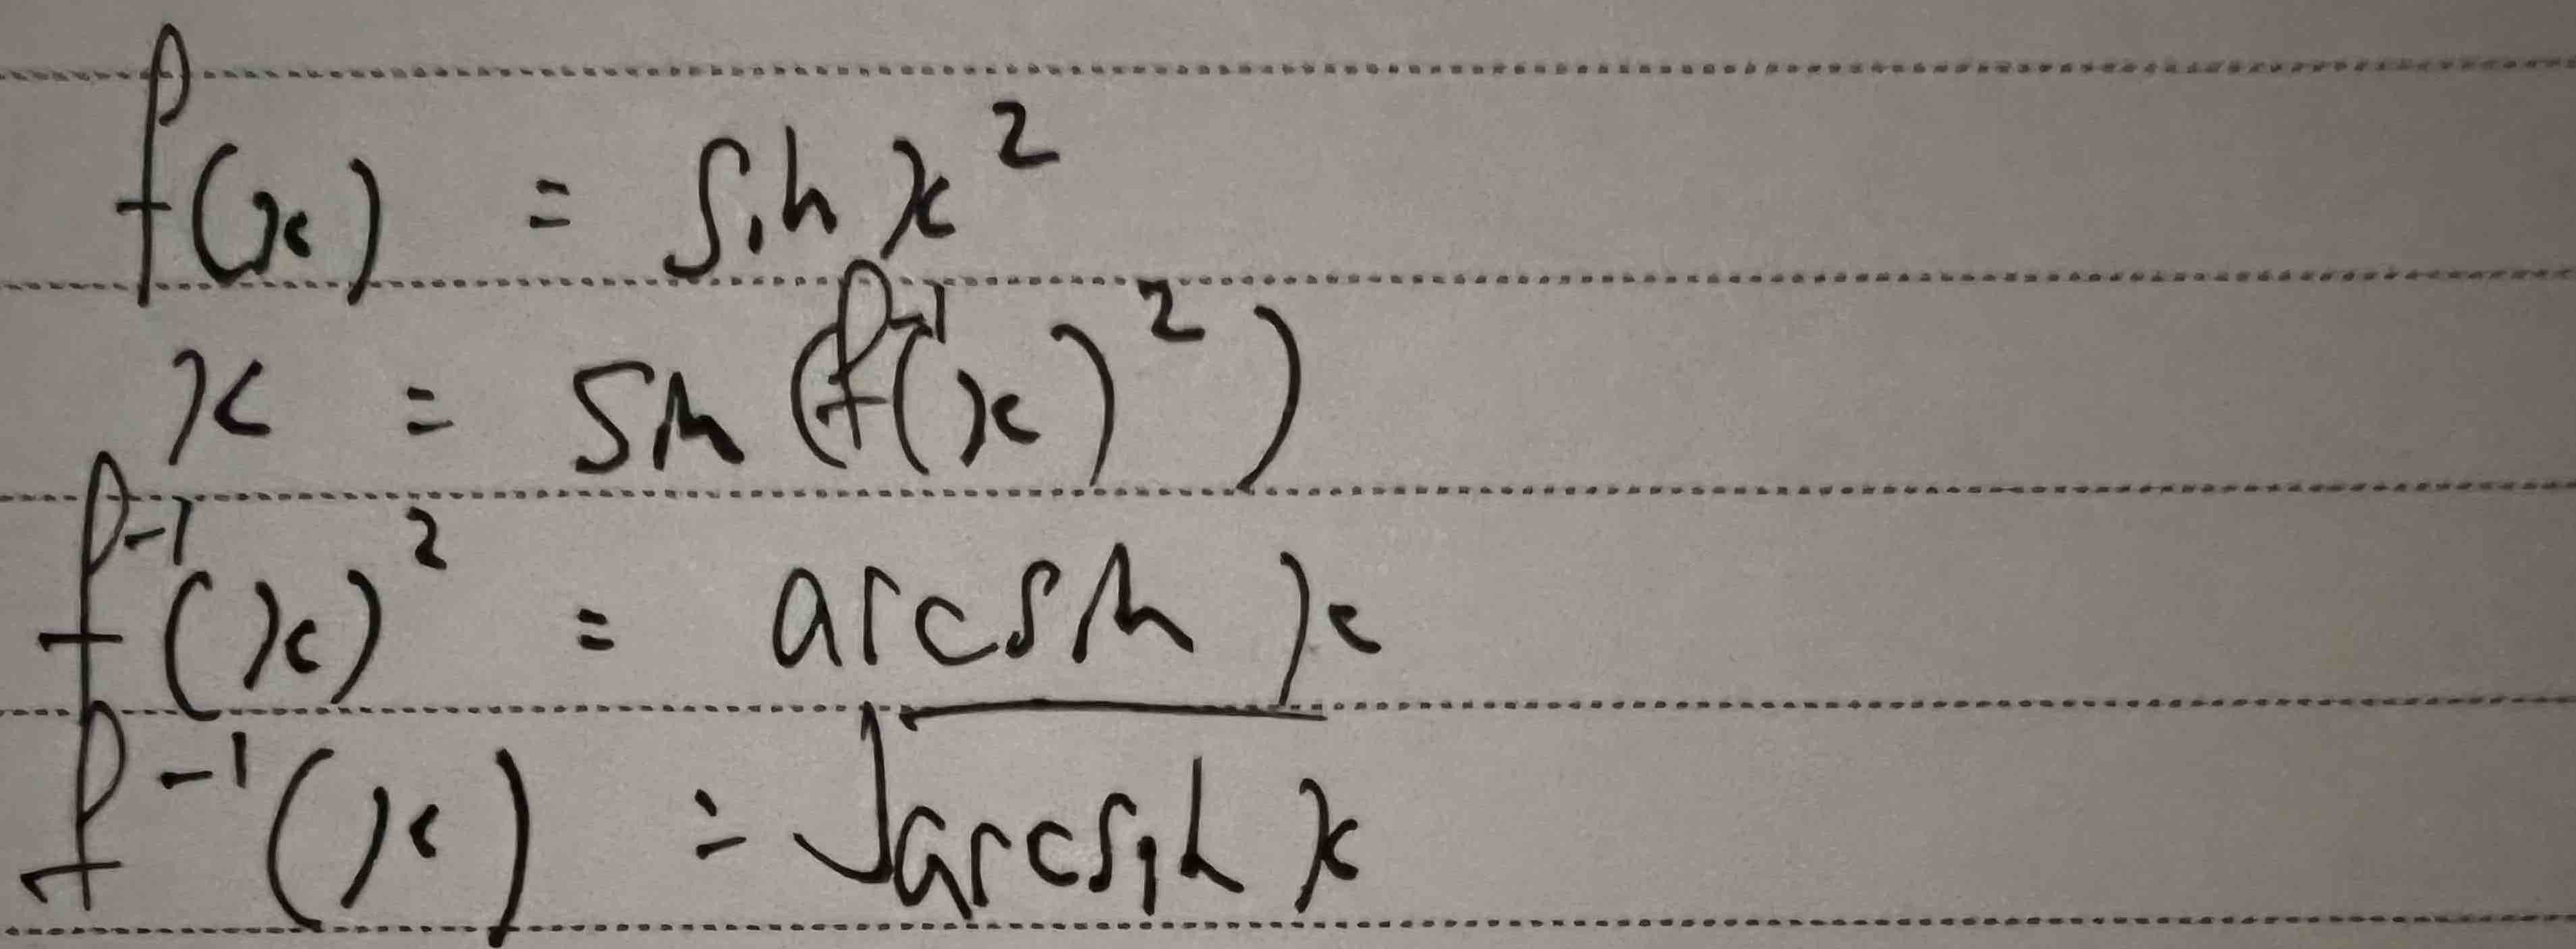 f(x) = sin x²
x = sin (f⁻¹(x)²)
f⁻¹(x)² = arcsin x
f⁻¹(x) = √arcsin x